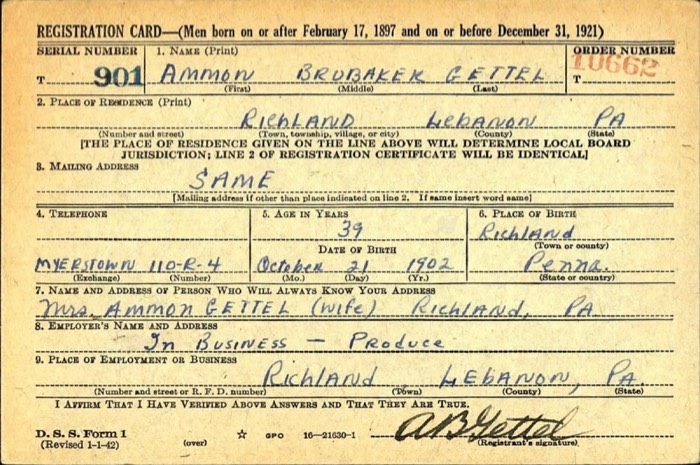 REGISTRATION CARD—(Men born on or after February 17, 1897 and on or before December 31, 1921)
SERIAL NUMBER 1. NAME (Print) ORDER NUMBER
T 901 AMMON BRUBAKER GETTEL T 10662
(First) (Middle) (Last)
2. PLACE OF RESIDENCE (Print)
RICHLAND LEBANON PA
(Number and street) (Town, township, village, or city) (County) (State)
[THE PLACE OF RESIDENCE GIVEN ON THE LINE ABOVE WILL DETERMINE LOCAL BOARD
JURISDICTION; LINE 2 OF REGISTRATION CERTIFICATE WILL BE IDENTICAL]
3. MAILING ADDRESS
SAME
[Mailing address if other than place indicated on line 2. If same insert word same]
4. TELEPHONE 5. AGE IN YEARS 6. PLACE OF BIRTH
39 RichLAND
DATE OF BIRTH (Town or county)
MYERSTOWN 110-R-4 October 21 1902 Penna.
(Exchange) (Number) (Mo.) (Day) (Yr.) (State or country)
7. NAME AND ADDRESS OF PERSON WHO WILL ALWAYS KNOW YOUR ADDRESS
Mrs. AMMON GETTEL (wife) RichLAND, PA
8. EMPLOYER'S NAME AND ADDRESS
In BUSINESS — PRODUCE
9. PLACE OF EMPLOYMENT OR BUSINESS
RichLAND LEBANON, PA.
(Number and street or R. F. D. number) (Town) (County) (State)
I AFFIRM THAT I HAVE VERIFIED ABOVE ANSWERS AND THAT THEY ARE TRUE.
D. S. S. Form 1
(Revised 1-1-42) (over) ☆ GPO 16—21630-1 AB Gettel
(Registrant's signature)